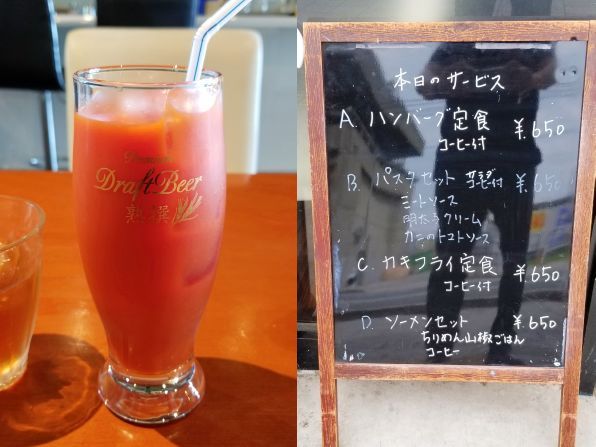 Premium
Draft Beer
熟撰
本日のサービス
A. ハンバーグ定食 ¥.650
コーヒー付
B. パスタセット サラダ コーヒー付 ¥.650
ミートソース
明太子クリーム
カニのトマトソース
C. カキフライ定食 ¥.650
コーヒー付
D. ソーメンセット ¥.650
ちりめん山椒ごはん
コーヒー